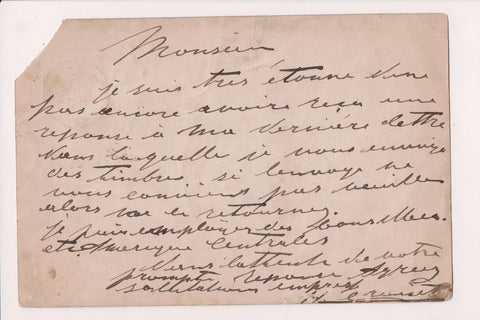 Monsieur
je suis très étonné de ne
pas encore avoire reçu une
reponse a ma dernière lettre
dans laquelle je vous envoye
des timbres si lenvoye ne
vous convient pas veuillez
alors me le retourner.
je puis employer des
et Amerique Centrales
Dans lattente de votre
prompte reponse Agreez
salutations empres